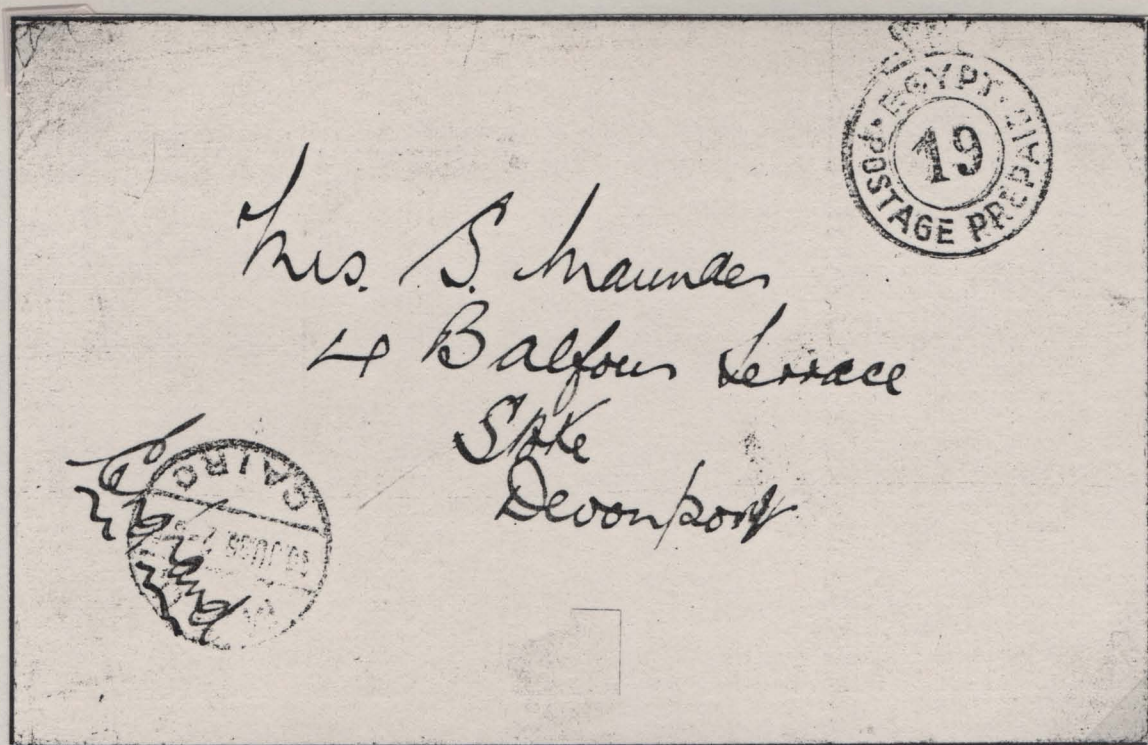 EGYPT POSTAGE PREPAID
19
Mrs. S. Maunder
4 Balfour Terrace
Stoke
Devonport
CAIRO